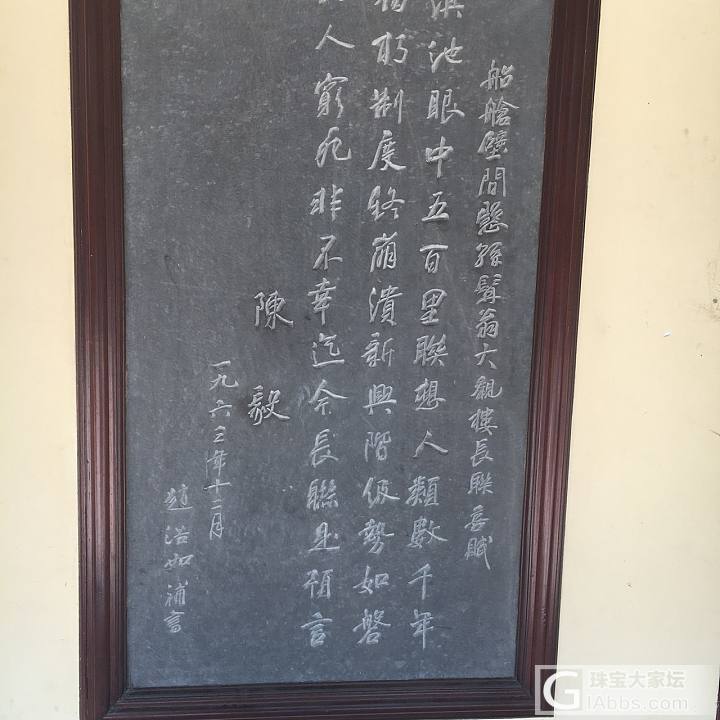 船艙壁間懸孫髯翁大觀樓長聯喜賦
滇池眼中五百里聯想人類數千年
朽制度終崩潰新興階級勢如磐
人窮死非不幸迄今長聯是預言
陳毅
一九六三年十二月
趙浩如補書
珠宝大家坛
iJabbs.com